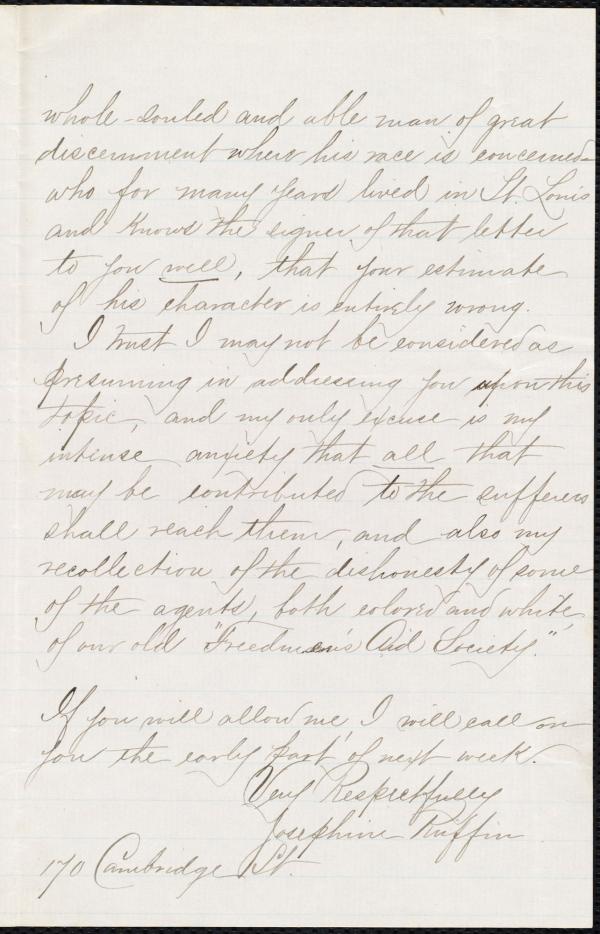 whole-souled and able man of great
discernment where his race is concerned
who for many years lived in St. Louis
and knows the signer of that letter
to you well, that your estimate
of his character is entirely wrong.
I trust I may not be considered as
presuming in addressing you upon this
topic, and my only excuse is my
intense anxiety that all that
may be contributed to the sufferers
shall reach them, and also my
recollection of the dishonesty of some
of the agents, both colored and white,
of our old "Freedmen's Aid Society."
If you will allow me, I will call on
you the early part of next week.
Very Respectfully
Josephine Ruffin
170 Cambridge St.